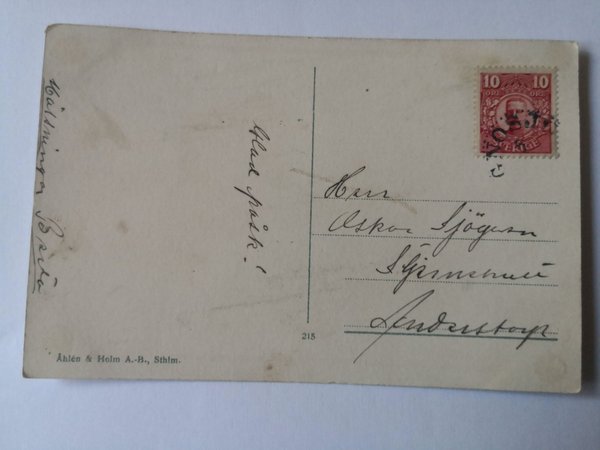 Hälsningar Berta
Glad påsk!
10 10
ÖRE ÖRE
SVERIGE
Herr
Oskar Sjögren
Anderstorp
215
Åhlén & Holm A.-B., Sthlm.